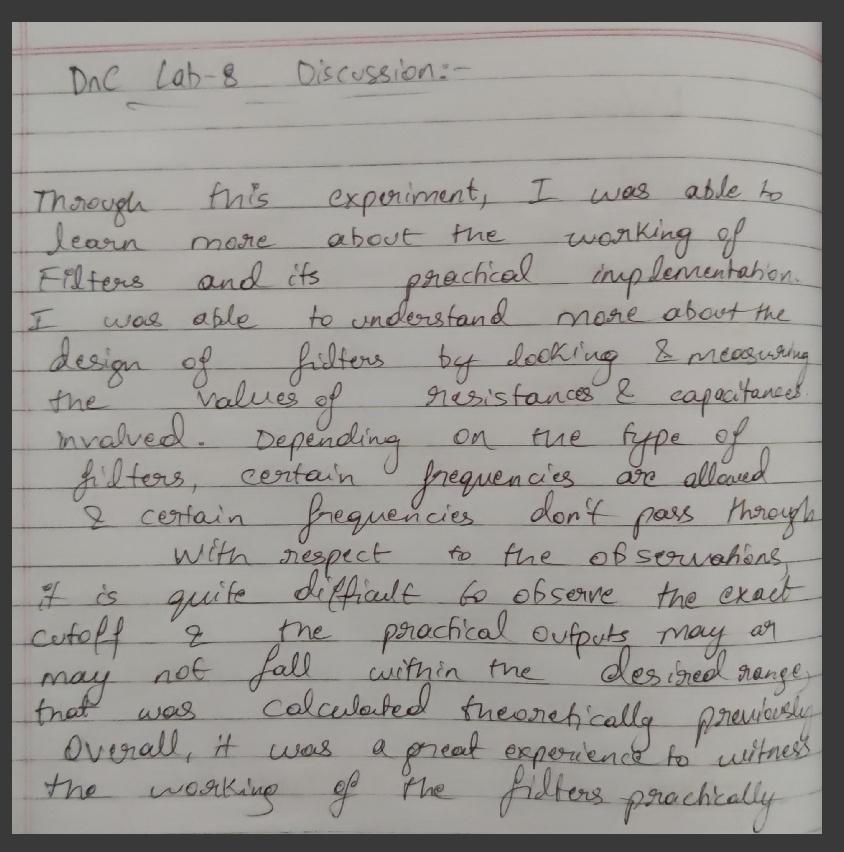 DnC Lab-8 Discussion:-
Through this experiment, I was able to
learn more about the working of
Filters and its practical implementation.
I was able to understand more about the
design of filters by looking & measuring
the values of resistances & capacitances
involved. Depending on the type of
filters, certain frequencies are allowed
& certain frequencies don't pass through
With respect to the observations,
it is quite difficult to observe the exact
cutoff & the practical outputs may or
may not fall within the desired range,
that was calculated theoretically previously
Overall, it was a great experience to witness
the working of the filters practically